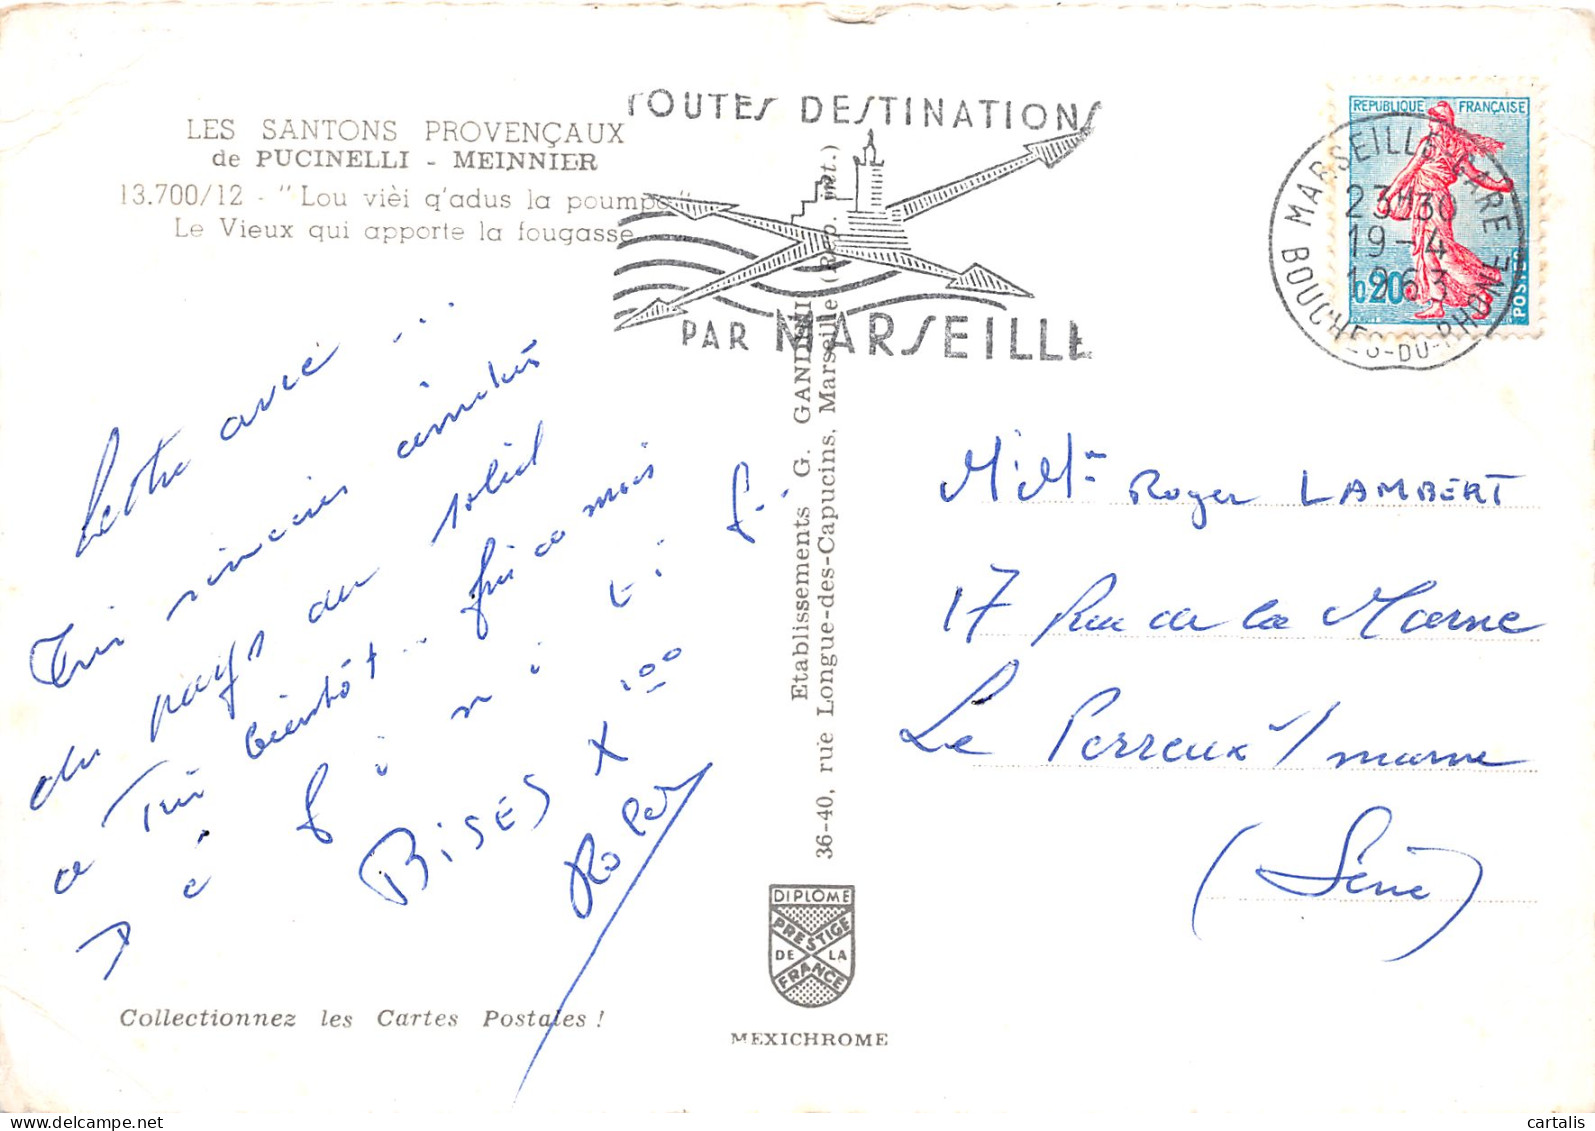 LES SANTONS PROVENÇAUX
de PUCINELLI - MEINNIER
13.700/12 - " Lou vièi q'adus la poumpo "
Le Vieux qui apporte la fougasse
TOUTES DESTINATIONS
PAR MARSEILLE
REPUBLIQUE FRANÇAISE
0,20
POSTES
MARSEILLE-GARE
23H30
19-4
1963
BOUCHES-DU-RHONE
Lettre
amitiés
du pays du soleil
a bientôt
BISES X 100
Etablissements G. GANDINI
36-40, rue Longue-des-Capucins, Marseille (Rep. int.)
M. Mme Roger LAMBERT
17 Rue de la Marne
Le Perreux s/ marne
(Seine)
DIPLOME
PRESTIGE
DE LA
FRANCE
MEXICHROME
Collectionnez les Cartes Postales !
cartalis
delcampe.net